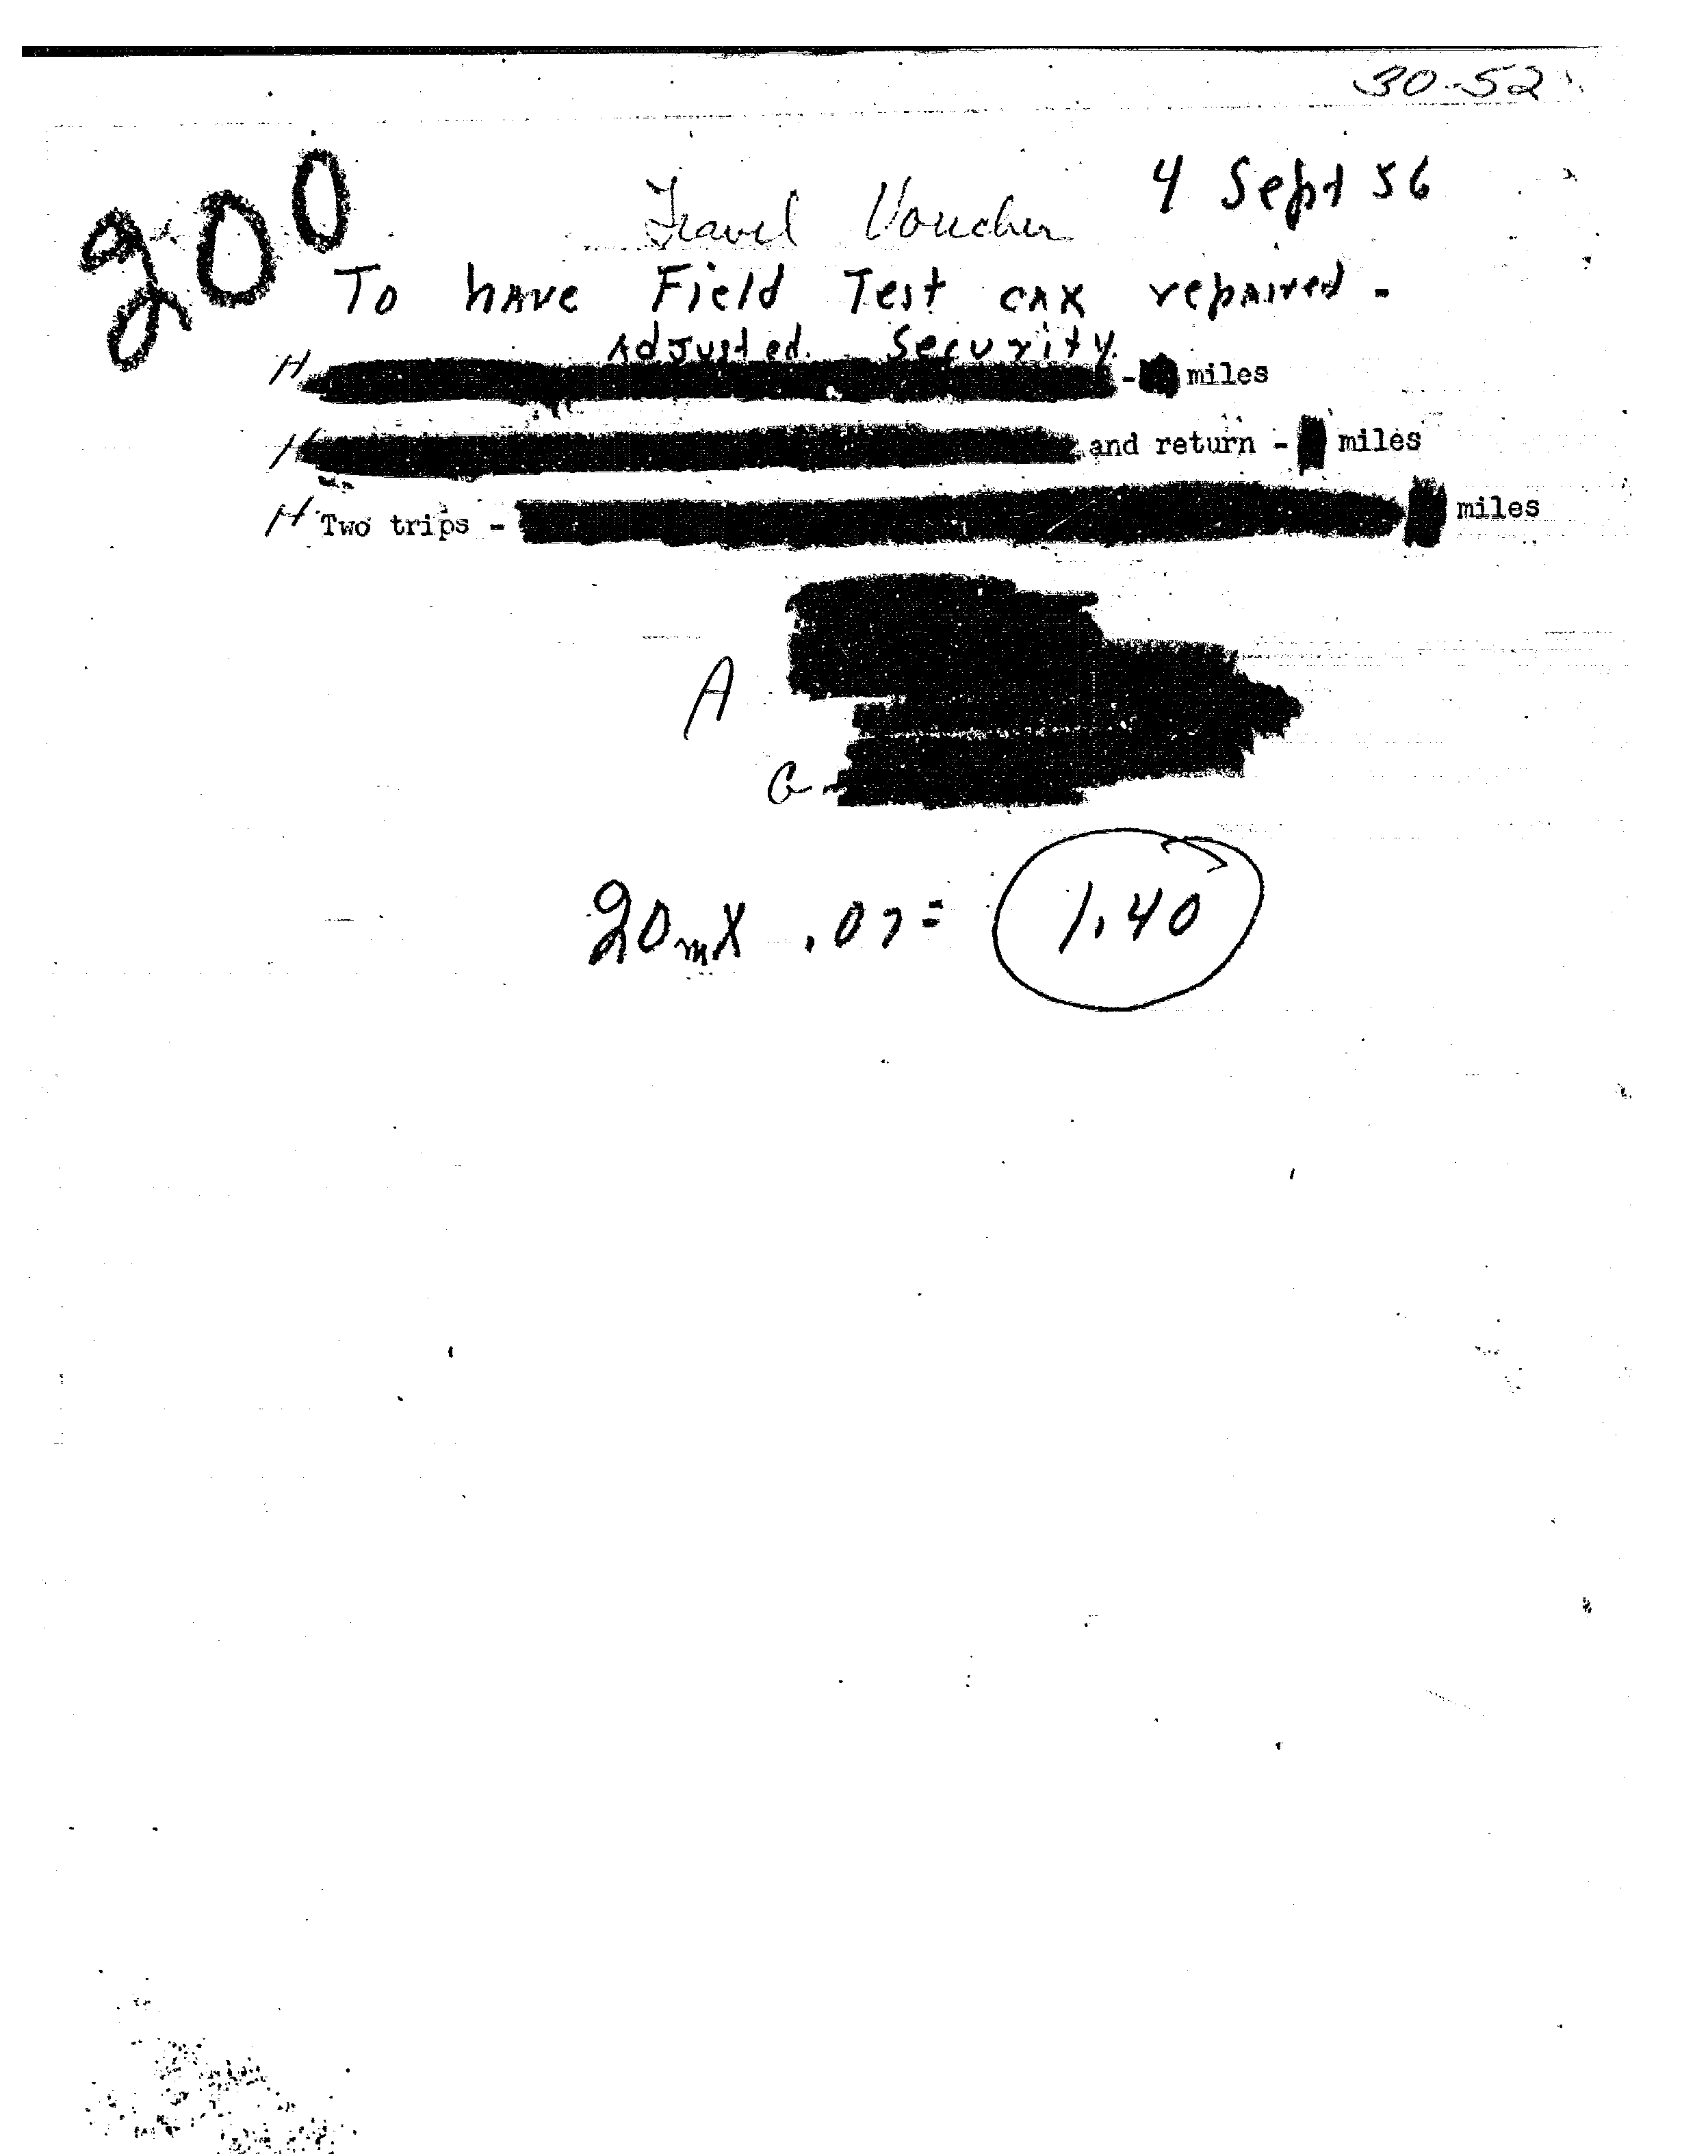 30-52
4 Sept 56
200
Travel Voucher
To have Field Test car repaired -
Adjusted. Security.
H - miles
H and return - miles
H Two trips - miles
A
C -
20m X .07 = 1.40